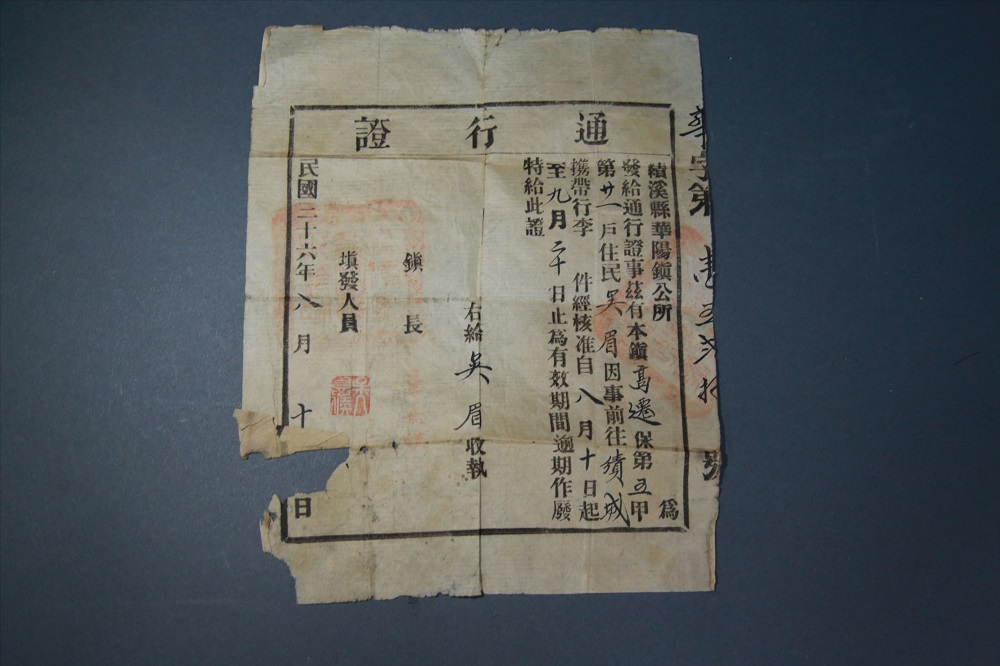 華字第 壹 五 號
通行證
績溪縣華陽鎮公所 爲
發給通行證事茲有本鎮高遷保第五甲
第廿一戶住民吳眉因事前往績城
攜帶行李 件經核准自八月十日起
至九月二十日止爲有效期間逾期作廢
特給此證
右給吳眉收執
鎮長
塡發人員
民國三十六年八月十日